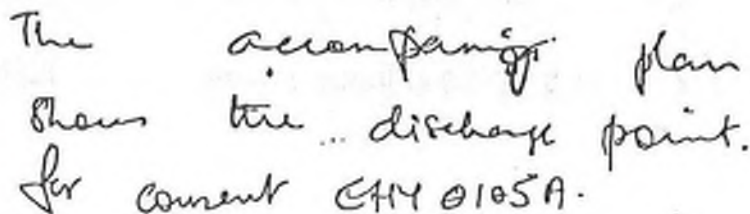 The accompanying plan
shows the discharge point.
for consent CHY0105A.